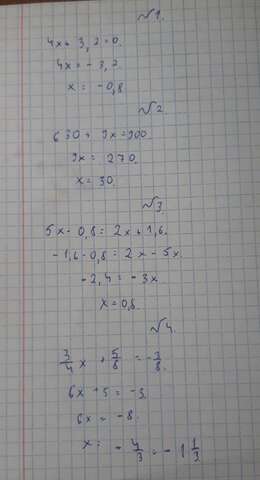 №1.
4x + 3,2 = 0.
4x = - 3,2
x = -0,8
№2
630 + 9x = 900
9x = 270.
x = 30.
№3
5x - 0,8 = 2x + 1,6.
-1,6 - 0,8 = 2x - 5x
-2,4 = -3x
x = 0,8.
№4
3/4 x + 5/8 = -3/8.
6x + 5 = -3.
6x = -8.
x = -4/3 = -1 1/3.